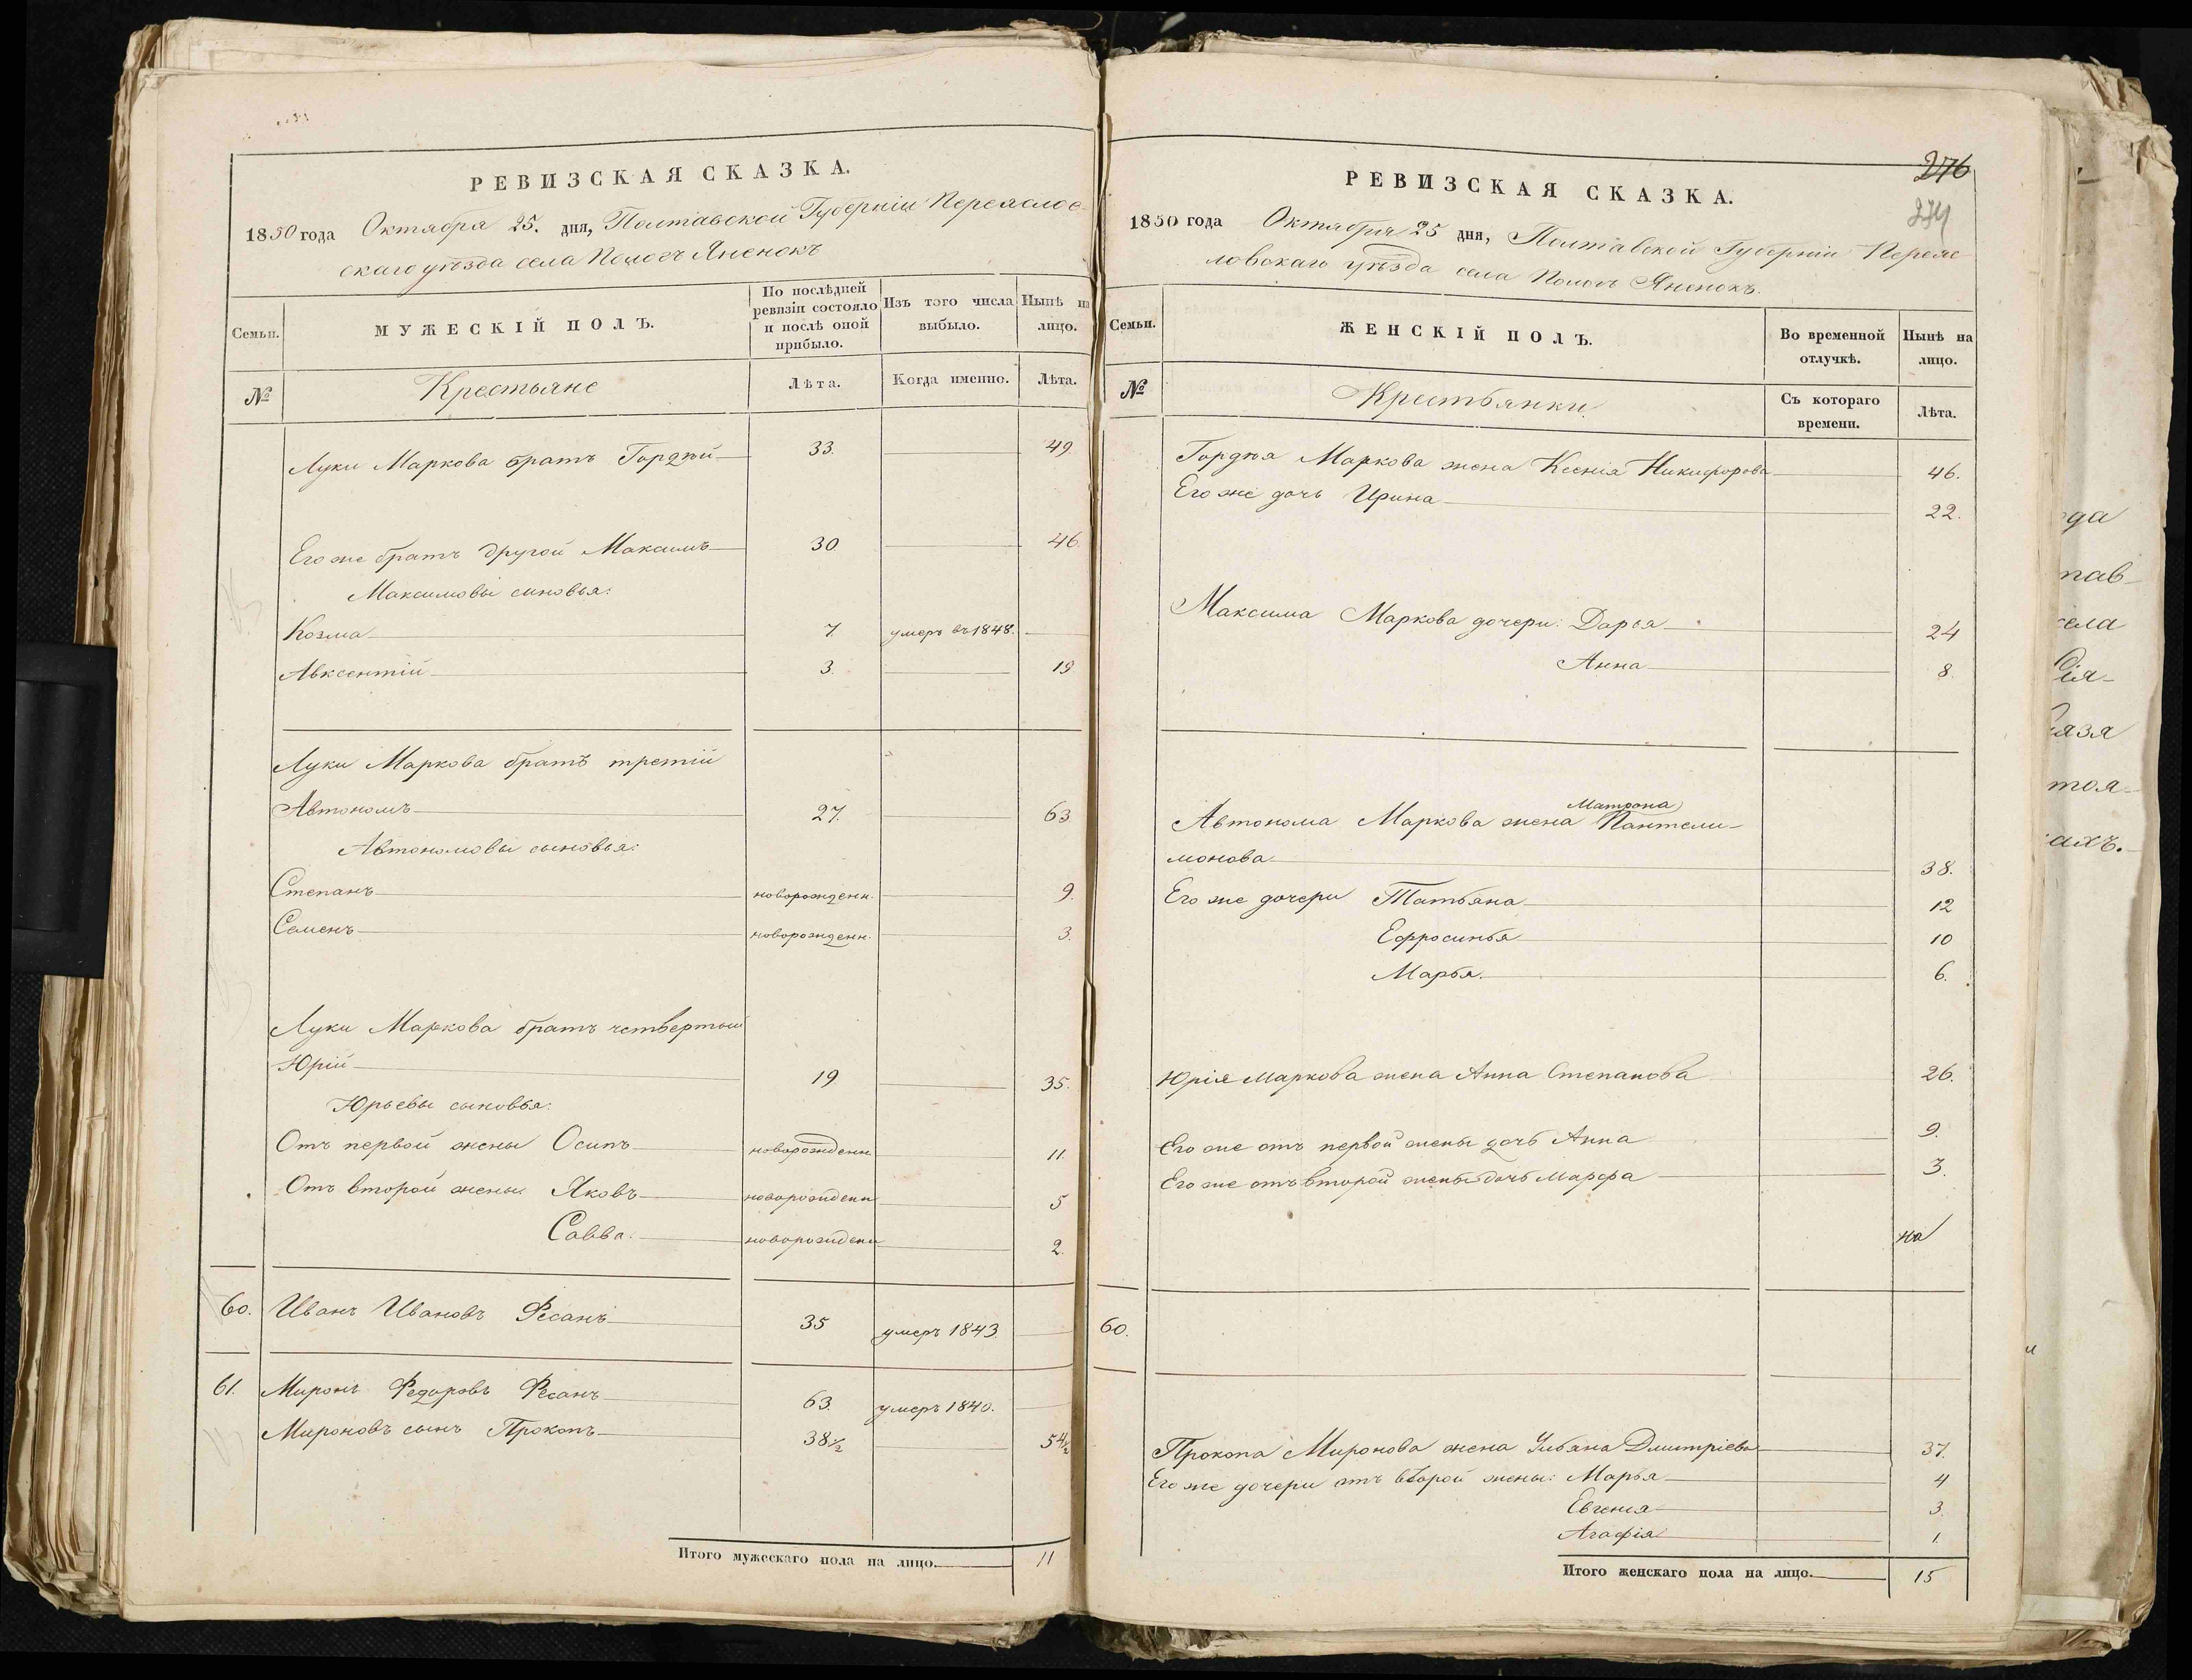 РЕВИЗСКАЯ СКАЗКА.
1850 года Октября 25. дня, Полтавской Губерніи Переяслов
скаго уѣзда села Пологъ Яненокъ
Семьи.
МУЖЕСКІЙ ПОЛЪ.
По послѣдней ревизіи состояло и послѣ оной прибыло.
Изъ того числа выбыло.
Нынѣ на лицо.
№
Крестьяне
Лѣта.
Когда именно.
Лѣта.
Луки Маркова братъ Гордѣй 33. 49
Его же братъ другой Максимъ 30 46.
Максимовы сыновья:
Козма 7. умеръ въ 1848.
Авксентій 3. 19
Луки Маркова братъ третій
Автономъ 27. 63
Автономовы сыновья:
Степанъ новорожденн. 9.
Семенъ новорожденн. 3.
Луки Маркова братъ четвертый
Юрій 19 35.
Юрьевы сыновья:
Отъ первой жены Осипъ новорожденн. 11.
Отъ второй жены Яковъ новорожденн 5
Савва. новорожденн 2.
60. Иванъ Ивановъ Фесанъ 35 умеръ 1843.
61. Миронъ Федоровъ Фесанъ 63. умеръ 1840.
Мироновъ сынъ Прокопъ 38½ 54½
Итого мужескаго пола на лицо. 11
276
274
РЕВИЗСКАЯ СКАЗКА.
1850 года Октября 25 дня, Полтавской Губерніи Переяс
ловскаго уѣзда села Пологъ Яненокъ.
Семьи.
ЖЕНСКІЙ ПОЛЪ.
Во временной отлучкѣ.
Нынѣ на лицо.
№
Крестьянки.
Съ котораго времени.
Лѣта.
Гордѣя Маркова жена Ксенія Никифорова 46.
Его же дочь Ирина 22.
Максима Маркова дочери: Дарья 24
Анна 8.
Матрона
Автонома Маркова жена Пантели-
монова 38.
Его же дочери Татьяна 12
Ефросинья 10
Марья. 6.
Юрія Маркова жена Анна Степанова 26.
Его же отъ первой жены дочь Анна 9.
Его же отъ второй жены дочь Марфа 3.
на
60.
Прокопа Миронова жена Ульяна Дмитріева 37.
Его же дочери отъ второй жены: Марья 4
Евгенія 3.
Агафія 1.
Итого женскаго пола на лицо. 15